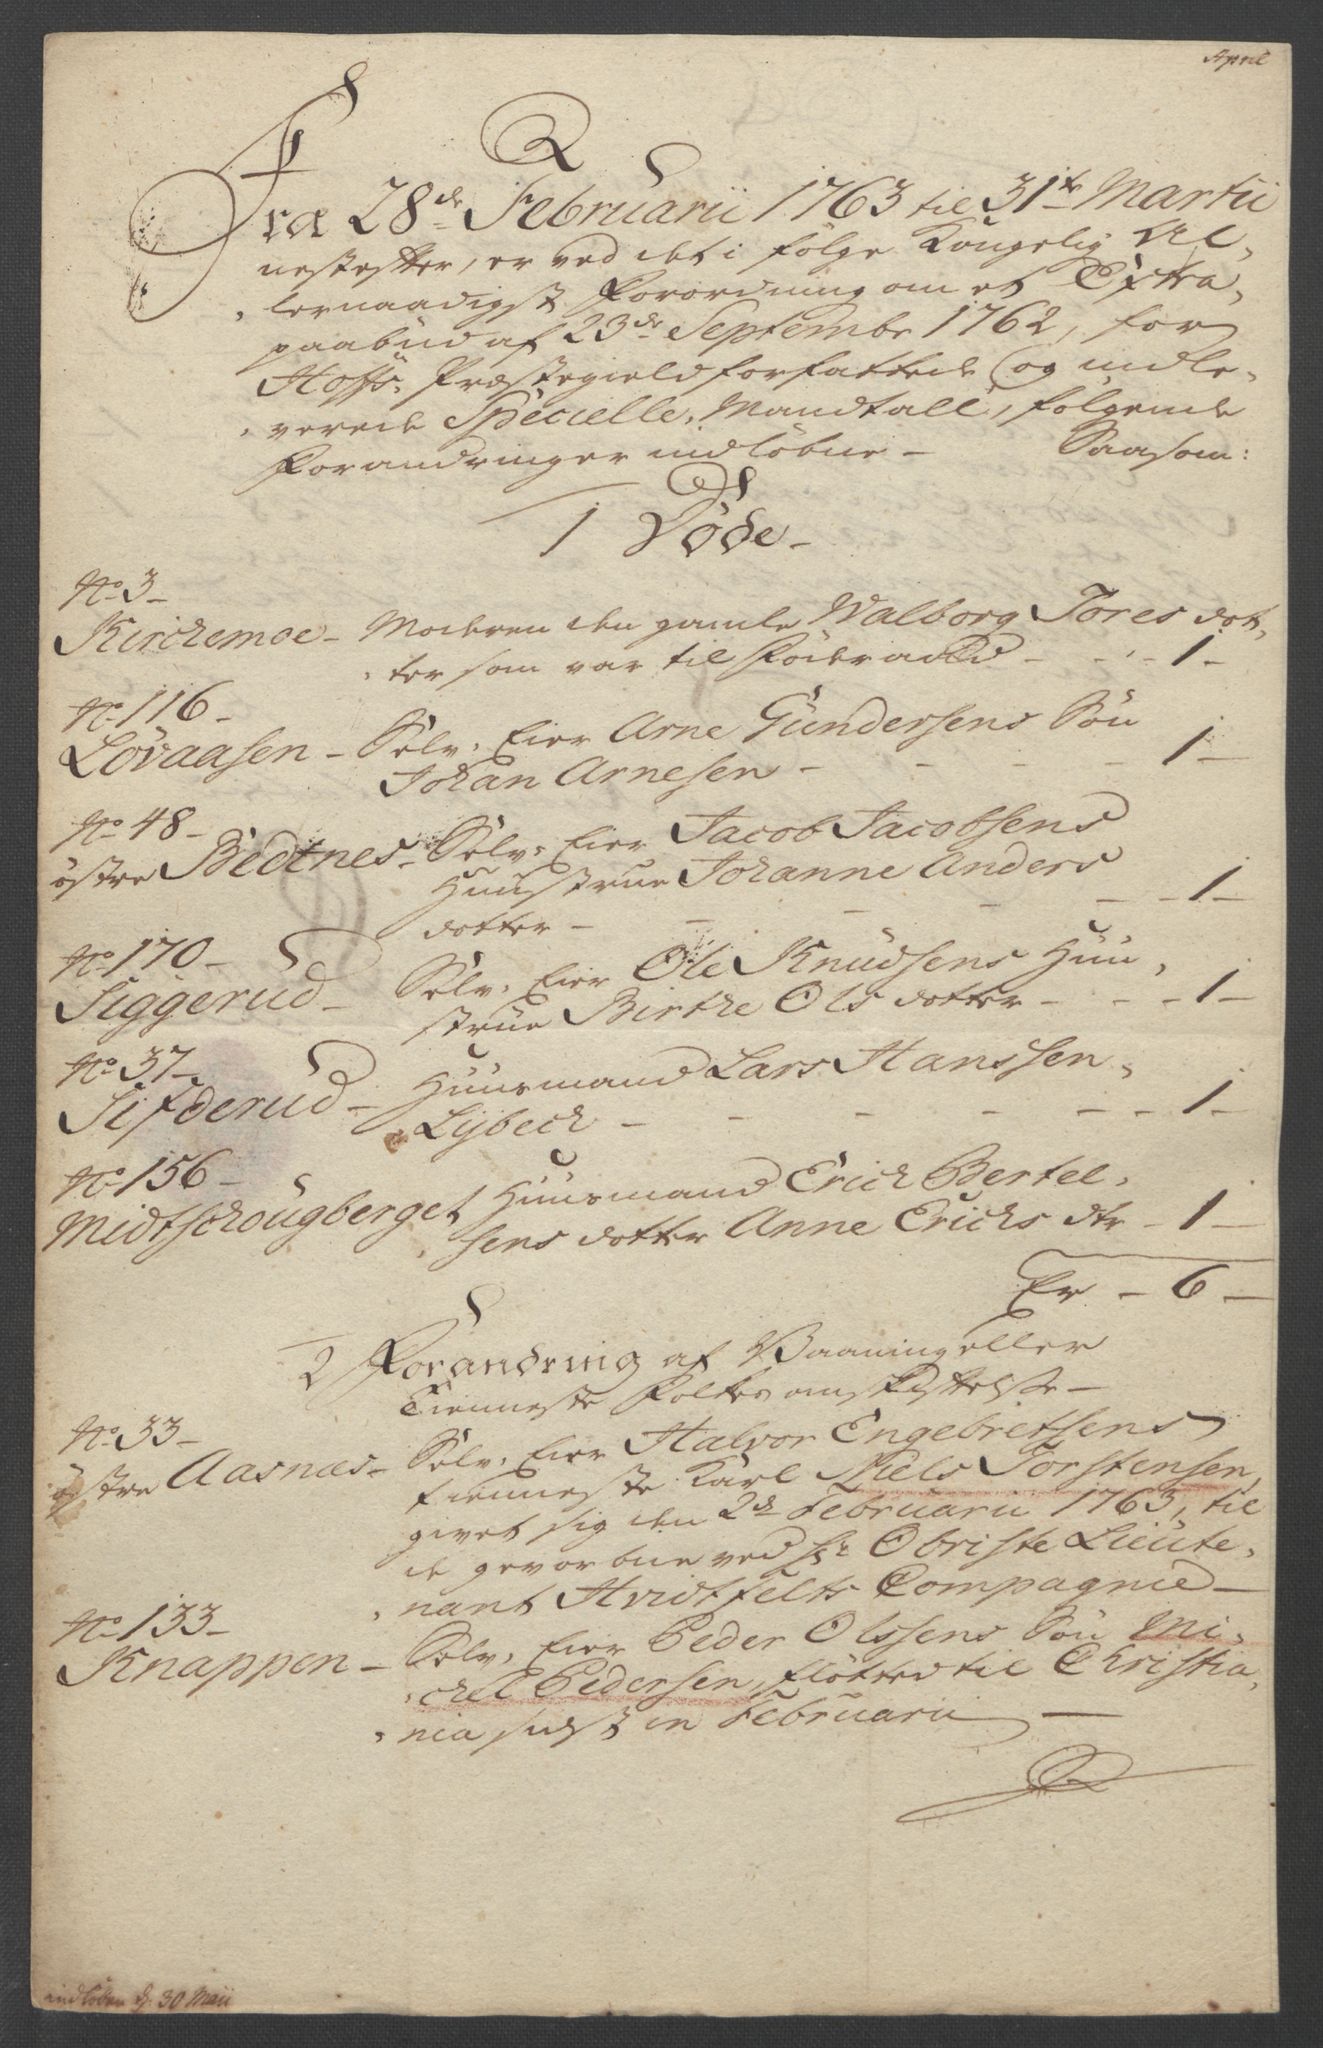 April
Fra 28de Februarii 1763 til 31te Martii
nestefter, er ved det i følge Kongelig Al,
, lernaadigst Forordning om et Extra,
paabud af 23de Septembr 1762, for
Hoffs, Præstegield forfattede og indle,
, verede Specielle, Mandtall, følgende
Forandringer indløbne - Saasom:
1 Døde -
No 3 -
Kirckemoe - Moderen den gamle Walborg Tores dot,
, ter som var til Føderaad - - - 1 -
No 116 -
Løvaasen - Selv, Eier Arne Gundersens Søn
Johan Arnesen - - - - - 1 -
No 48 -
østre Bedtnes - Selv, Eier Jacob Jacobsens
Huustrue Johanne Anders
dotter - - - - - - 1 -
No 170 -
Siggerud - Selv, Eier Ole Knudsens Huu,
strue Birthe Ols dotter - - - 1 -
No 37 -
Sifderud - Huusmand Lars Hanssen,
, Lybeck - - - - - - 1 -
No 156 -
Midtschougberget Huusmand Erich Bertel,
, sens dotter Anne Erichs dtr - 1 -
Er - 6 -
2 Forandring af Vaaning eller
Tienneste Folkes omskiftelse -
No 33 -
østre Aasnæs - Selv, Eier Halvor Engebretsens
tienneste Karl Niels Torstensen,
givet sig den 2de Februarii 1763, til
de gevorbne ved Hr Obriste Lieute,
, nant Hvidtfelts Compagnie -
No 133 -
Knappen - Selv, Eier Peder Olssens Søn Mi,
, chel Pedersen, fløtted til Christia,
, nia sidst in Februarii -
indløben d. 30 Maii